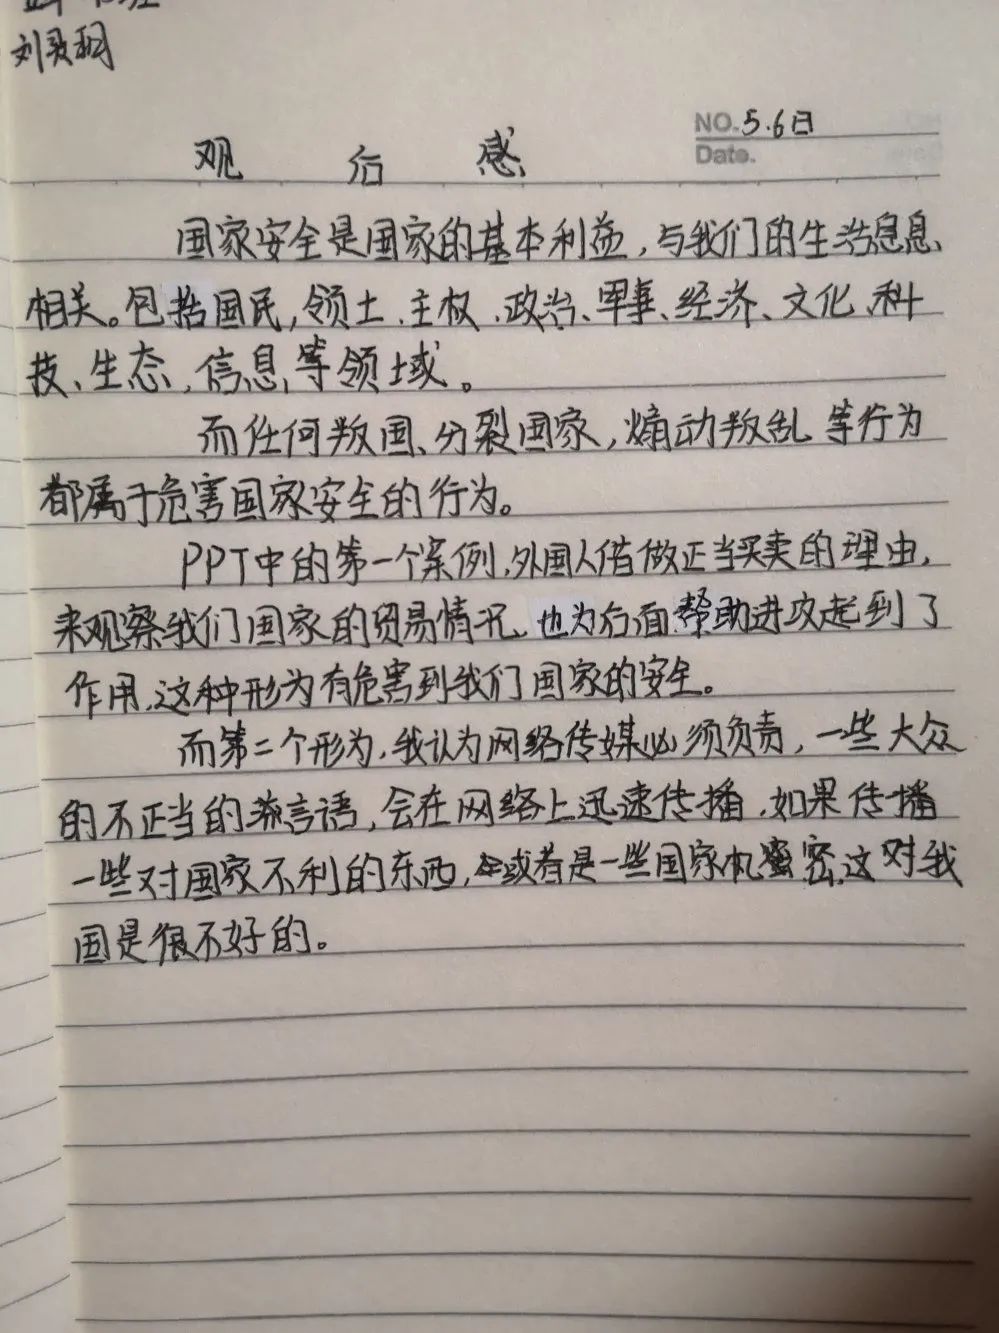 刘灵
NO. 5.6日
Date.
观后感
国家安全是国家的基本利益,与我们的生活息息
相关。包括国民,领土、主权、政治、军事、经济、文化、科
技、生态,信息,等领域。
而任何叛国、分裂国家,煽动叛乱等行为
都属于危害国家安全的行为。
PPT中的第一个案例,外国人借做正当买卖的理由,
来观察我们国家的贸易情况,也为后面帮助进攻起到了
作用,这种形为有危害到我们国家的安全。
而第二个形为,我认为网络传媒必须负责,一些大众
的不正当的言语,会在网络上迅速传播,如果传播
一些对国家不利的东西,或者是一些国家机密,这对我
国是很不好的。